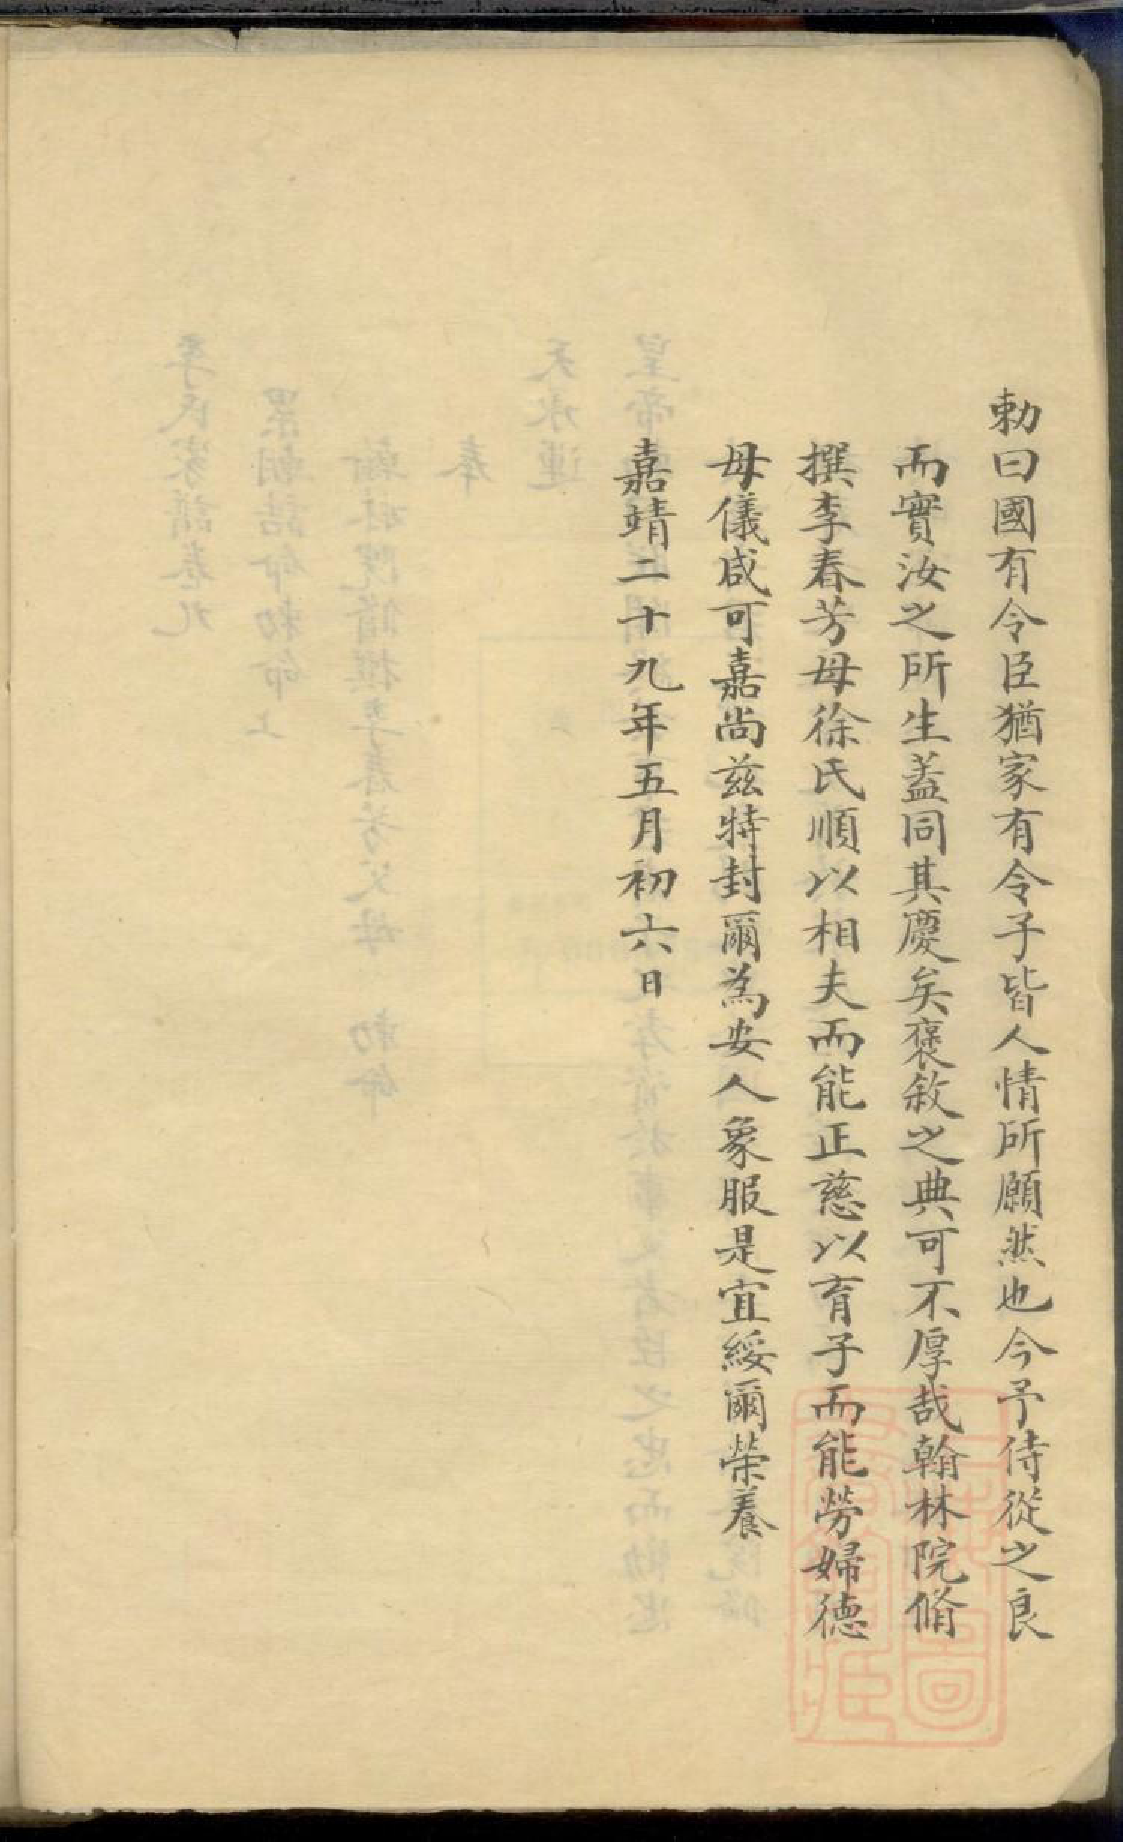 勅曰國有令臣猶家有令子皆人情所願然也今予侍從之良
而實汝之所生蓋同其慶矣褒敘之典可不厚哉翰林院脩
撰李春芳母徐氏順以相夫而能正慈以育子而能勞婦德
母儀咸可嘉尚茲特封爾為安人象服是宜綏爾榮養
嘉靖二十九年五月初六日